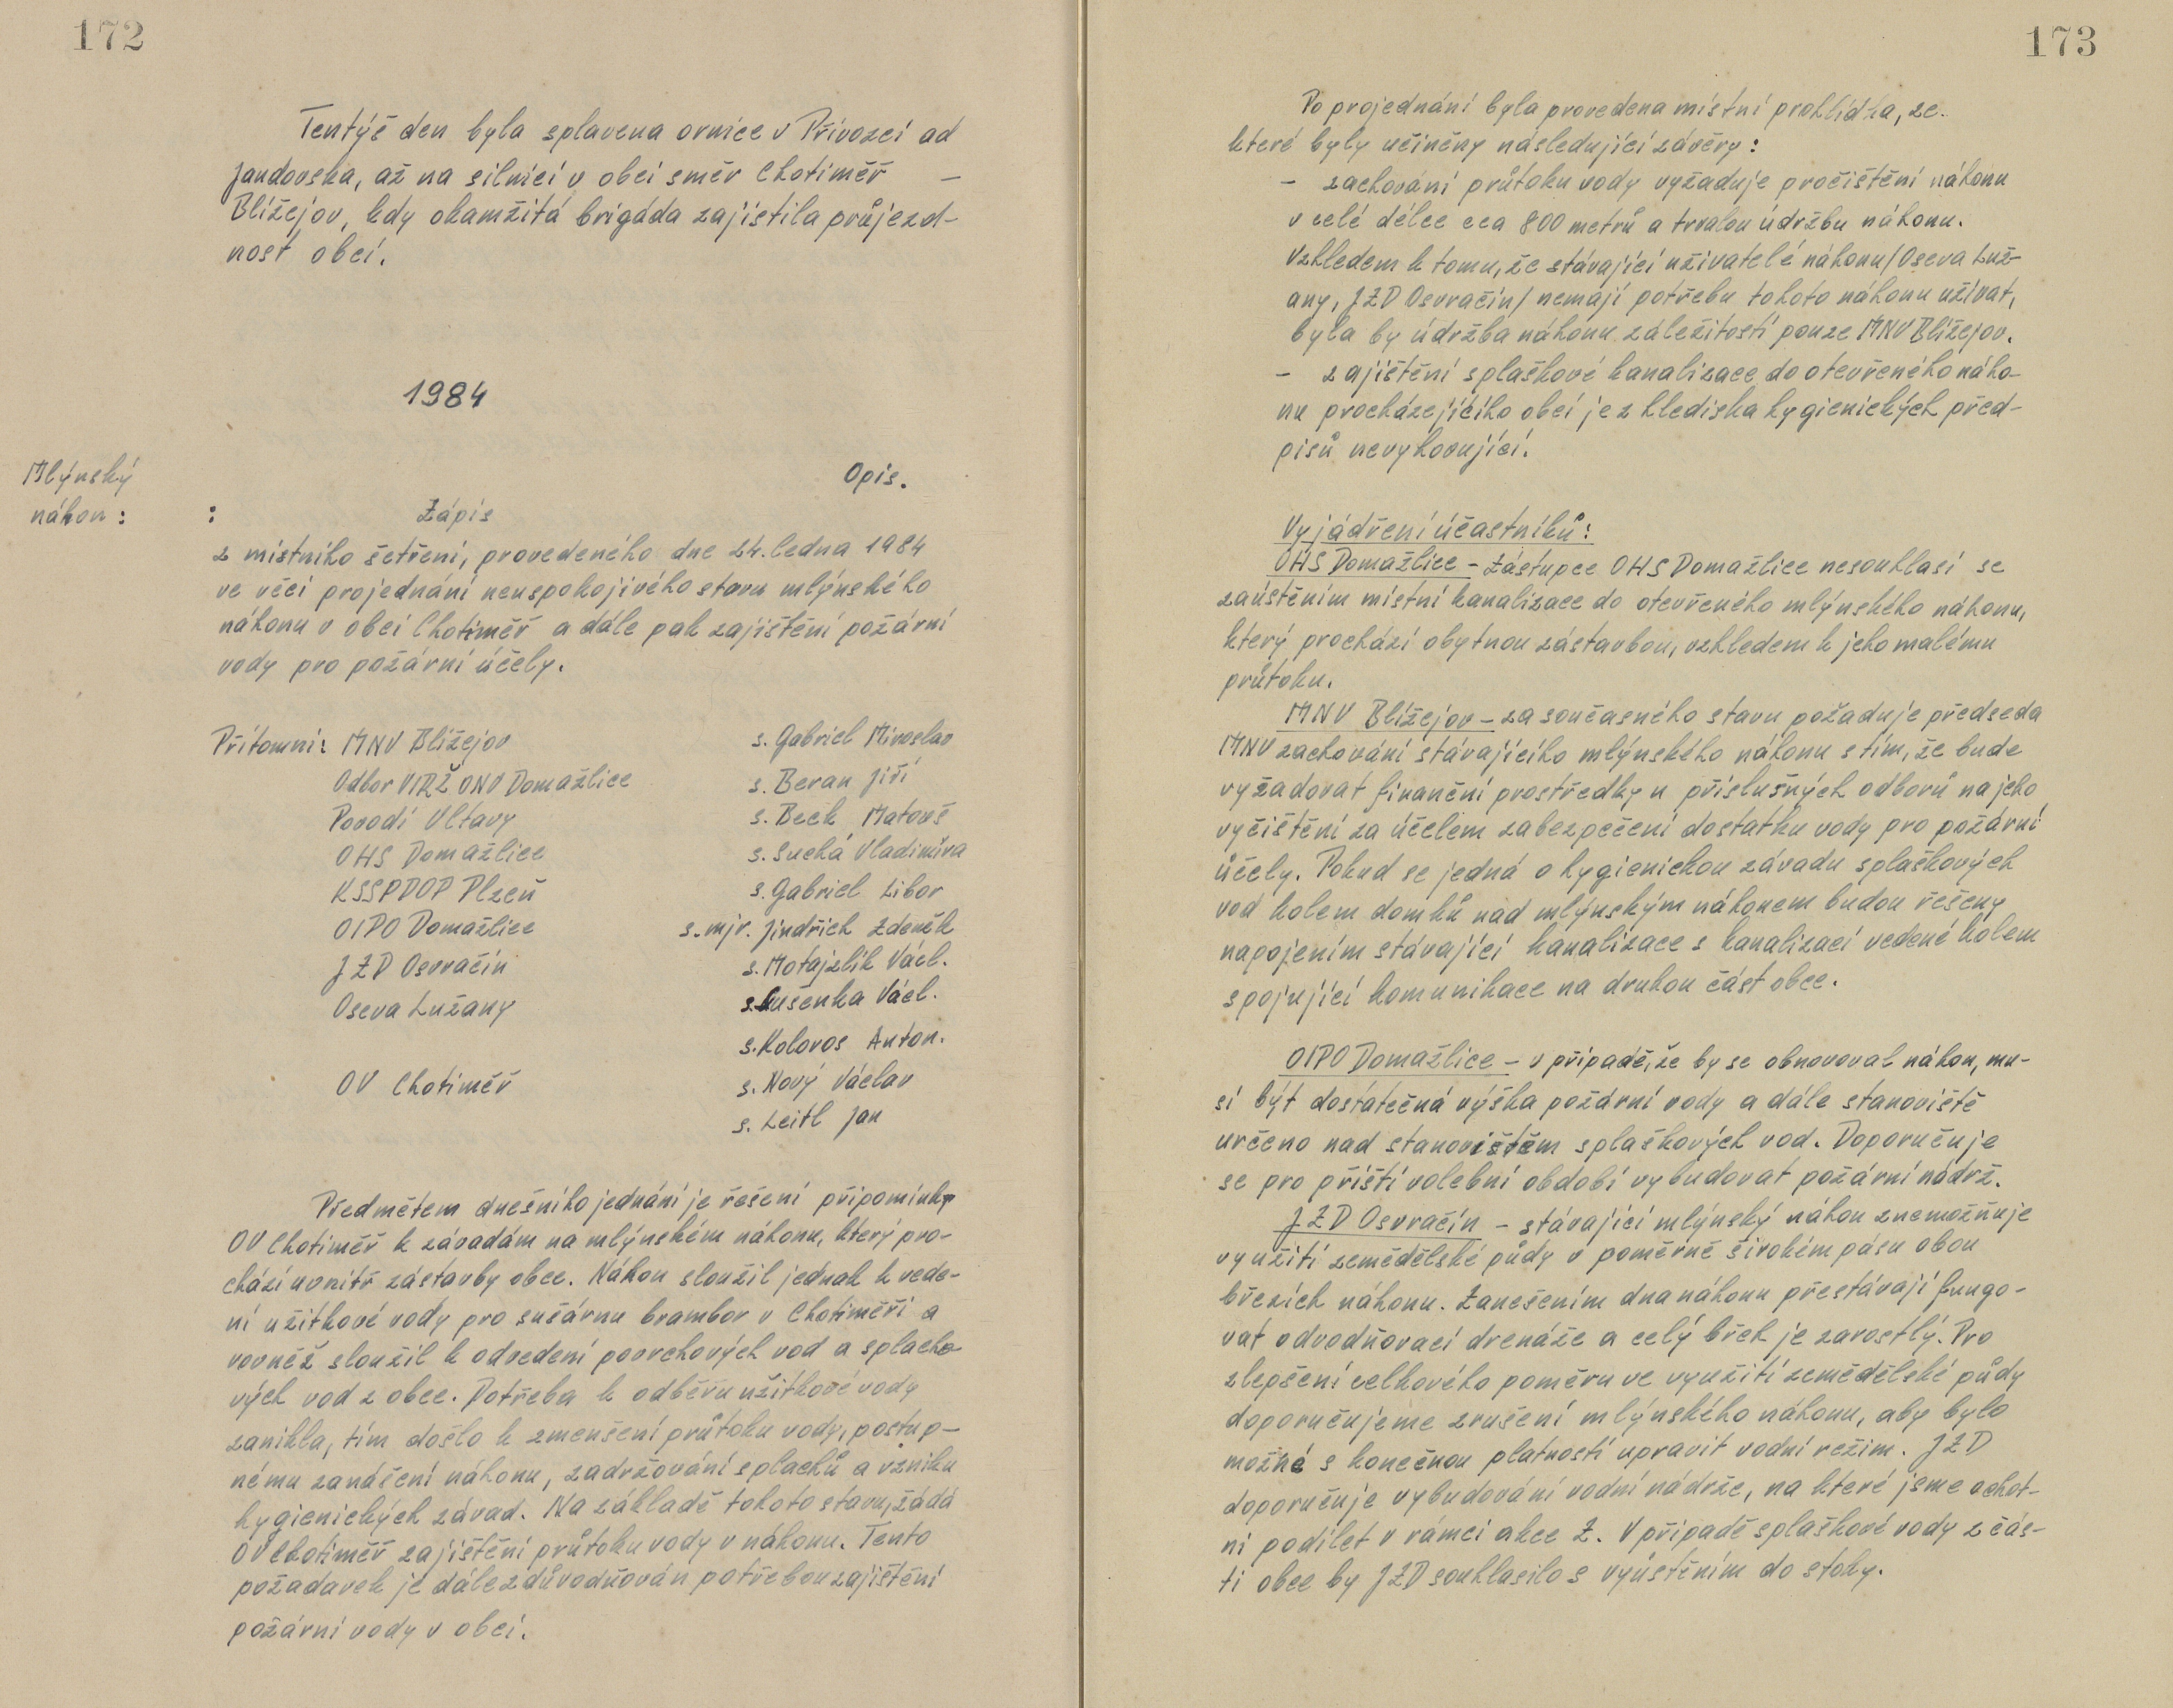 172
Tentýž den byla splavena ornice v Přívozci ad
Jandovska, až na silnici v obci směr Chotiměř –
Blížejov, kdy okamžitá brigáda zajistila průjezd-
nost obcí.
1984
Mlýnský
náhon :
Opis.
:
Zápis
z místního šetření, provedeného dne 24. ledna 1984
ve věci projednání neuspokojivého stavu mlýnského
náhonu v obci Chotiměř a dále pak zajištění požární
vody pro požární účely.
Přítomni: MNV Blížejov s. Gabriel Miroslav
Odbor VLRŽ ONV Domažlice s. Beran Jiří
Povodí Vltavy s. Beck Matouš
OHS Domažlice s. Suchá Vladimíra
KSSPPOP Plzeň s. Gabriel Libor
OIPO Domažlice s. mjr. Jindřich Zdeněk
JZD Osvračín s. Motajzlík Václ.
Oseva Lužany s. Kušenka Václ.
s. Kolovos Anton.
OV Chotiměř s. Nový Václav
s. Leitl Jan
Předmětem dnešního jednání je řešení připomínky
OV Chotiměř k závadám na mlýnském náhonu, který pro-
chází uvnitř zástavby obce. Náhon sloužil jednak k vede-
ní užitkové vody pro sušárnu brambor v Chotiměři a
rovněž sloužil k odvedení povrchových vod a splacho-
vých vod z obce. Potřeba k odběru užitkové vody
zanikla, tím došlo k zmenšení průtoku vody, postup-
nému zanášení náhonu, zadržování splachů a vzniku
hygienických závad. Na základě tohoto stavu, žádá
OV Chotiměř zajištění průtoku vody v náhonu. Tento
požadavek je dále zdůvodňován potřebou zajištění
požární vody v obci.
173
Po projednání byla provedena místní prohlídka, ze.
které byly učiněny následující závěry :
– zachování průtoku vody vyžaduje pročištění náhonu
v celé délce cca 800 metrů a trvalou údržbu náhonu.
Vzhledem k tomu, že stávající uživatelé náhonu /Oseva Luž-
any, JZD Osvračín/ nemají potřebu tohoto náhonu užívat,
byla by údržba náhonu záležitostí pouze MNV Blížejov.
– zajištění splaškové kanalizace do otevřeného náho-
nu procházejícího obcí je z hlediska hygienických před-
pisů nevyhovující.
Vyjádření účastníků :
OHS Domažlice – Zástupce OHS Domažlice nesouhlasí se
zaústěním místní kanalizace do otevřeného mlýnského náhonu,
který prochází obytnou zástavbou, vzhledem k jeho malému
průtoku.
MNV Blížejov – za současného stavu požaduje předseda
MNV zachování stávajícího mlýnského náhonu s tím, že bude
vyžadovat finanční prostředky u příslušných odborů na jeho
vyčištění za účelem zabezpečení dostatku vody pro požární
účely. Pokud se jedná o hygienickou závadu splaškových
vod kolem domků nad mlýnským náhonem budou řešeny
napojením stávající kanalizace s kanalizací vedené kolem
spojující komunikace na druhou část obce.
OIPO Domažlice – v případě, že by se obnovoval náhon, mu-
sí být dostatečná výška požární vody a dále stanoviště
určeno nad stanovištěm splaškových vod. Doporučuje
se pro příští volební období vybudovat požární nádrž.
JZD Osvračín – stávající mlýnský náhon znemožňuje
využití zemědělské půdy v poměrně širokém pásu obou
březích náhonu. Zanešením dna náhonu přestávají fungo-
vat odvodňovací drenáže a celý břeh je zarostlý. Pro
zlepšení celkového poměru ve využití zemědělské půdy
doporučujeme zrušení mlýnského náhonu, aby bylo
možné s konečnou platností upravit vodní režim. JZD
doporučuje vybudování vodní nádrže, na které jsme ochot-
ni podílet v rámci akce Z. V případě splaškové vody z čás-
ti obce by JZD souhlasilo s vyústěním do stoky.